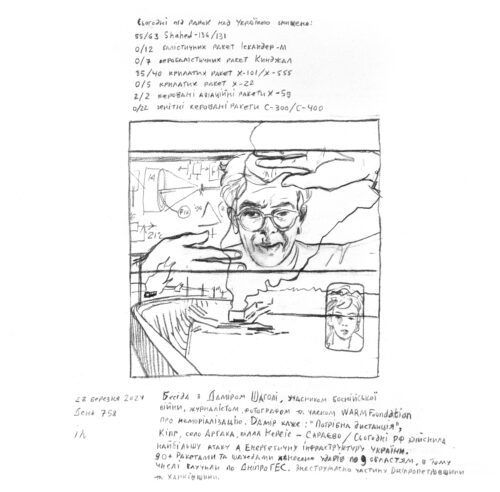 Сьогодні під ранок над Україною знищено:
55/63 Shahed-136/131
0/12 балістичних ракет Іскандер-М
0/7 аеробалістичних ракет Кинджал
35/40 крилатих ракет Х-101/Х-555
0/5 крилатих ракет Х-22
2/2 керовані авіаційні ракети Х-59
0/22 зенітні керовані ракети С-300/С-400
21%
22 березня 2024
День 758
Бесіда з Даміром Шаголі, учасником боснійської
війни, журналістом, фотографом та членом WARM Foundation
про меморіалізацію. Дамір каже: "Потрібна дистанція",
село мала – Сараєво / Сьогодні рф вчинила
найбільшу атаку в енергетичну інфраструктуру України.
90+ ракетами та шахедами нанесено ударів по 9 областям, в тому
числі влучили по ДніпроГЕС. Знеструмлено частину Дніпропетровщини
та Харківщини.